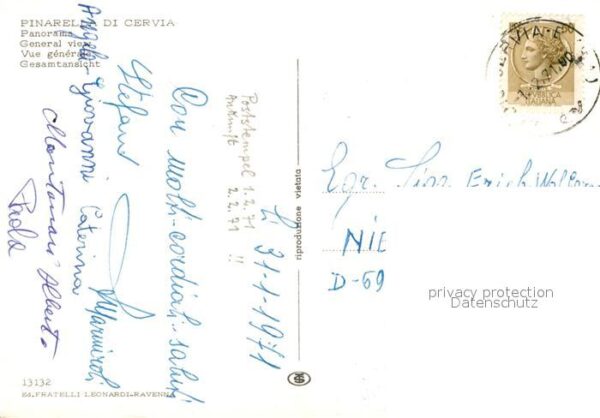 PINARELLA DI CERVIA
Panorama
General view
Vue générale
Gesamtansicht
Con molti cordiali saluti
Stefano
Angelo Giovanni Caterina
Montanari Alberto
Paola
Poststempel 1.2.71
Ankunft 2.2.71 !!
Lì 31-1-1971
riproduzione vietata
50
REPUBBLICA
ITALIANA
Egr. Sig. Erich
NIE
D-69
privacy protection
Datenschutz
13132
Ed. FRATELLI LEONARDI-RAVENNA